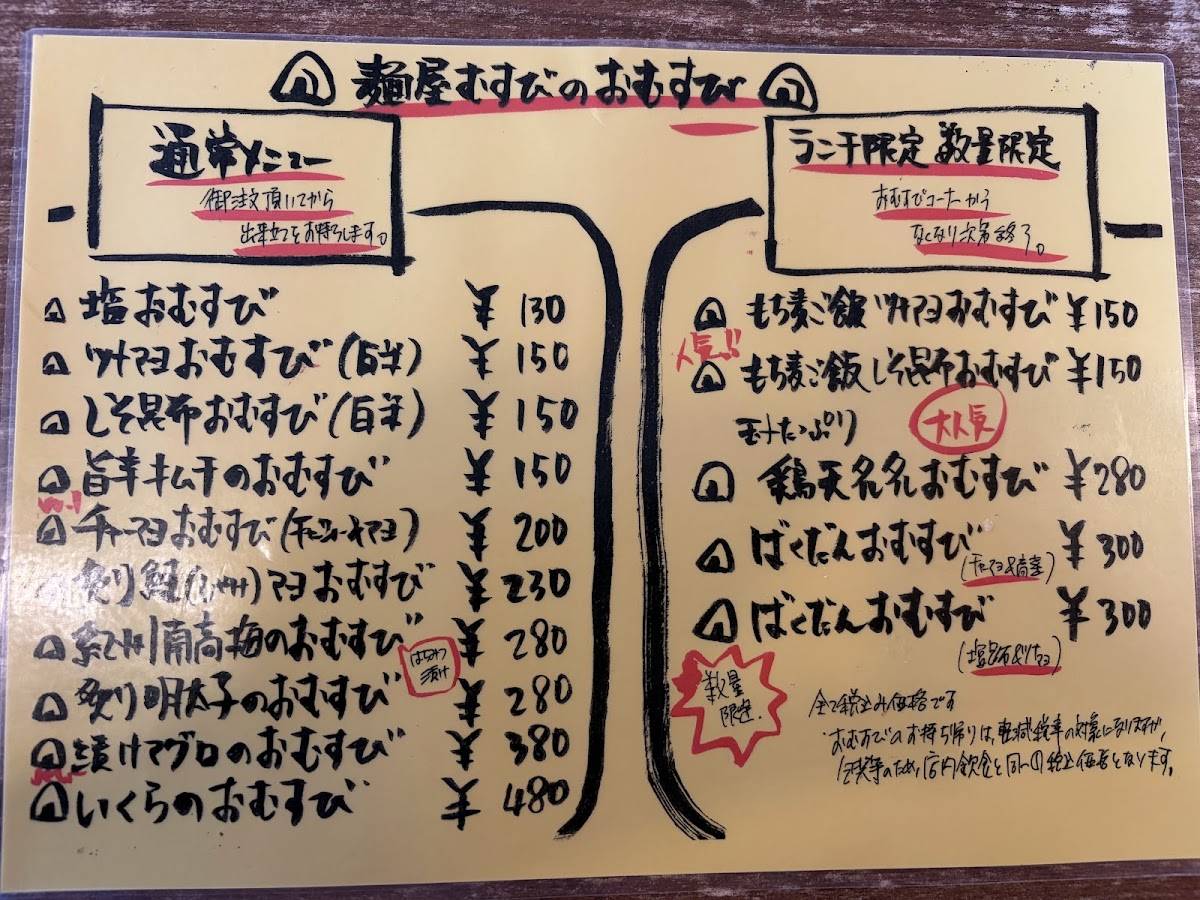 麺屋むすびのおむすび
通常メニュー
御注文頂いてから
出来立てをお持ちします。
塩おむすび ¥130
ツナマヨおむすび(白米) ¥150
しそ昆布おむすび(白米) ¥150
旨辛キムチのおむすび ¥150
チャーマヨおむすび(チャーシューマヨ) ¥200
炙り鮭(しゃけ)マヨおむすび ¥230
紀州南高梅のおむすび ¥280
はちみつ
漬け
炙り明太子のおむすび ¥280
漬けマグロのおむすび ¥380
いくらのおむすび ¥480
ランチ限定 数量限定
おむすびコーナーから
なくなり次第終了。
もち麦ご飯 ツナマヨおむすび ¥150
人気!!
もち麦ご飯 しそ昆布おむすび ¥150
大人気
鶏天名名おむすび ¥280
ばくだんおむすび ¥300
(チャーマヨ&高菜)
ばくだんおむすび ¥300
数量
限定.
全て税込み価格です
おむすびのお持ち帰りは、軽減税率の対象になりますが、
店内飲食と同一の税込価格となります。